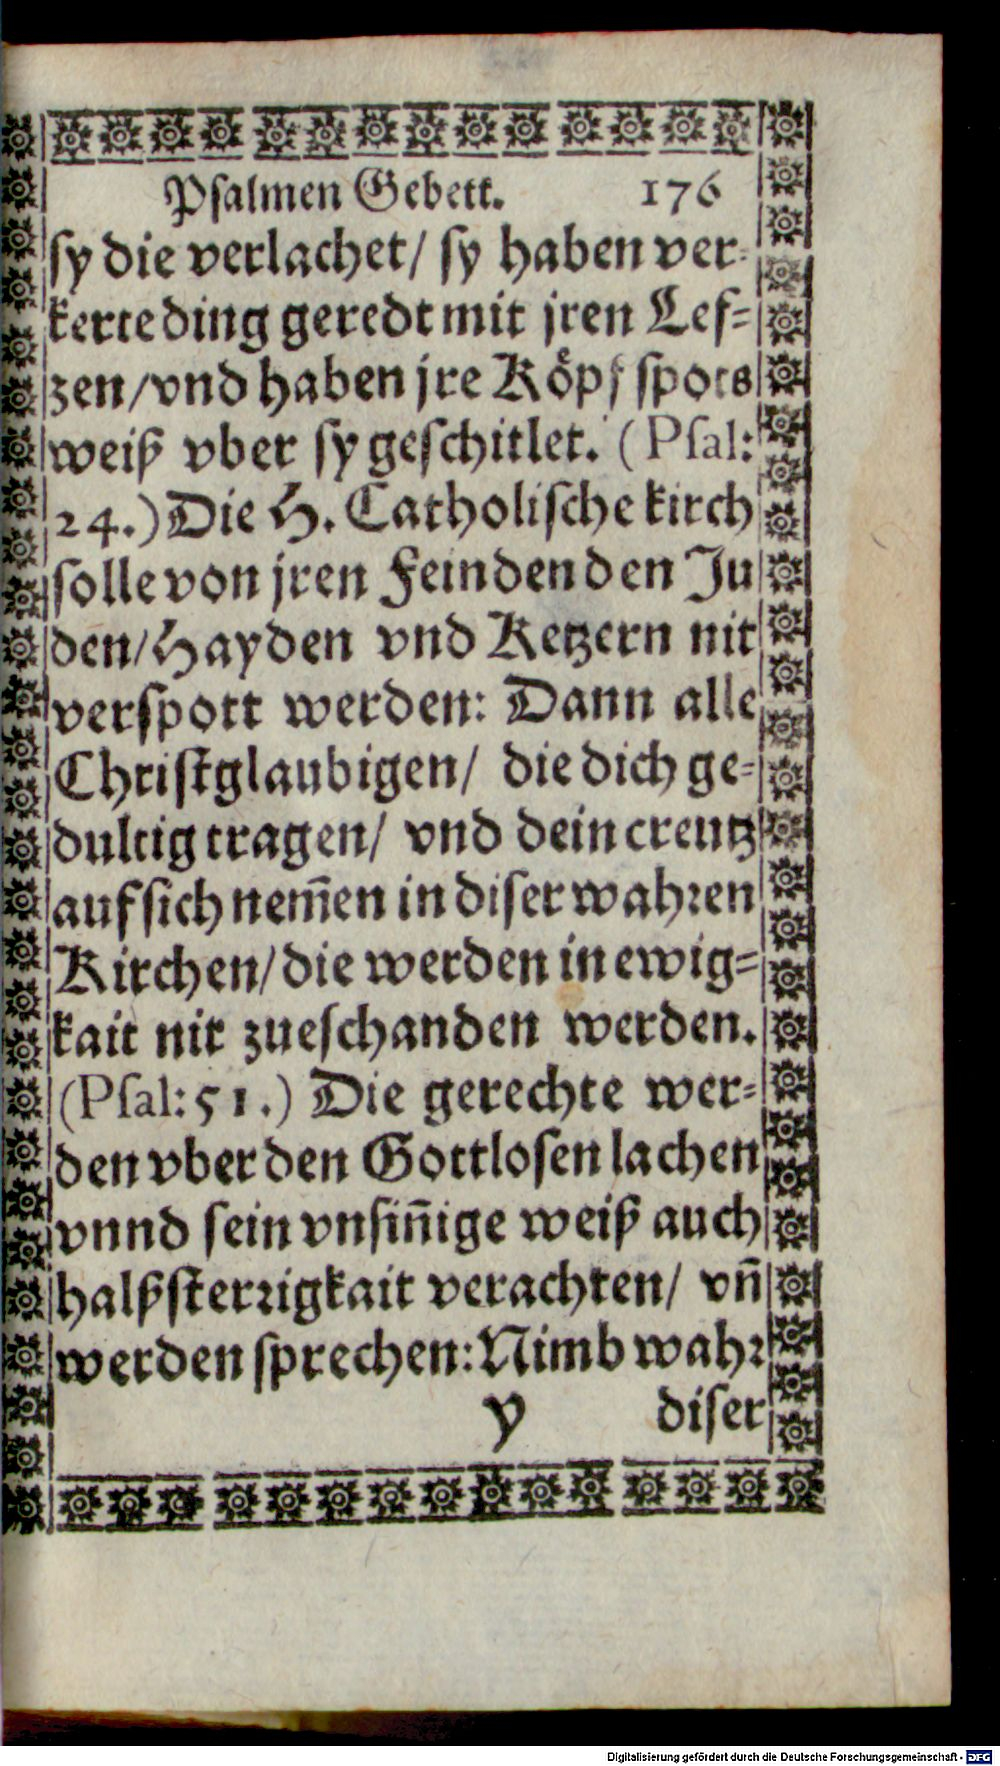 Psalmen Gebett. 176
sy die verlachet/ sy haben ver-
kerte ding geredt mit jren Lef-
zen/vnd haben jre Köpf spots
weiß vber sy geschitlet. (Psal:
24.) Die H. Catholische kirch
solle von jren Feinden den Ju
den/Hayden vnd Ketzern nit
verspott werden: Dann alle
Christglaubigen/ die dich ge-
dultig tragen/ vnd dein creutz
auf sich nem̃en in diser wahren
Kirchen/die werden in ewig-
kait nit zueschanden werden.
(Psal: 51.) Die gerechte wer-
den vber den Gottlosen lachen
vnnd sein vnsiñige weiß auch
halßsterrigkait verachten/ vñ
werden sprechen: Nimb wahr
y diser
Digitalisierung gefördert durch die Deutsche Forschungsgemeinschaft - DFG